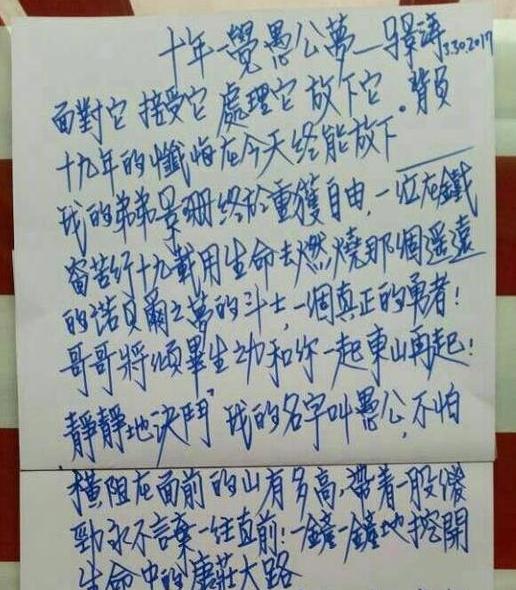 十年一覺愚公夢—景濤3.30.2017
面對它 接受它 處理它 放下它。背負
十九年的懺悔在今天終能放下
我的弟弟景珊終於重獲自由，一位在鐵
窗苦行十九載用生命去燃燒那個遥遠
的諾貝爾之夢的斗士，一個真正的勇者！
哥哥將傾畢生之功和你一起東山再起！
靜靜地決鬥 我的名字叫愚公，不怕
橫阻在面前的山有多高，帶着一股傻
勁永不言棄一往直前！一鏟一鏟地挖開
生命中的康莊大路